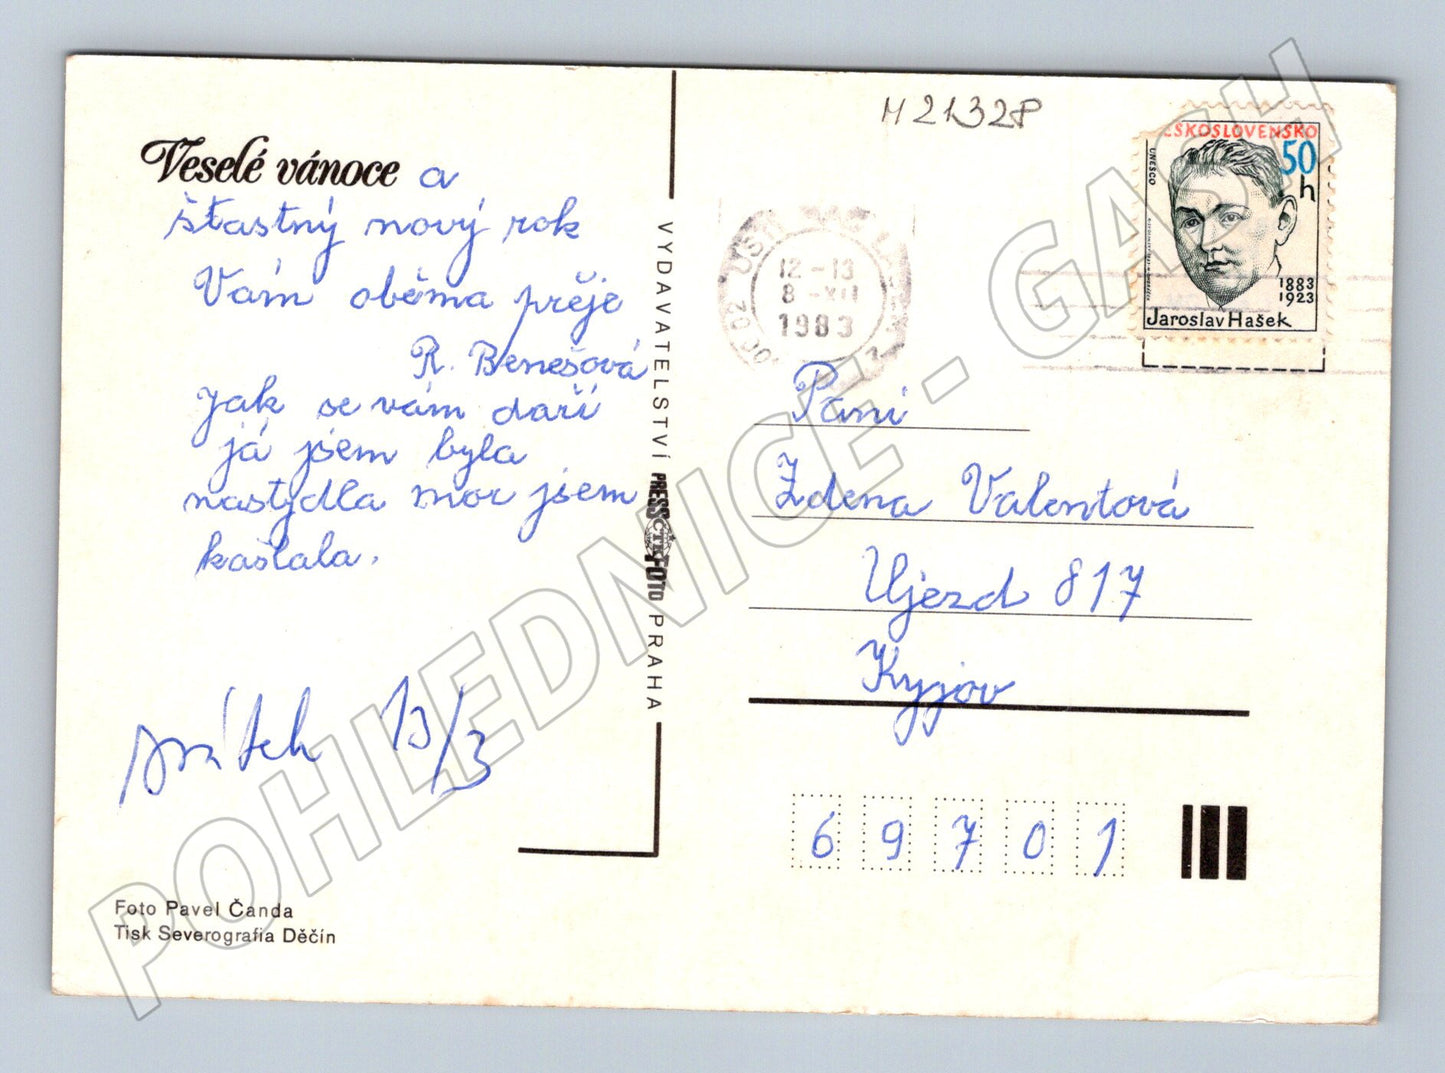 M 21328
Veselé vánoce a
šťastný nový rok
Vám oběma přeje
R. Benešová
Jak se vám daří
já jsem byla
nastydla moc jsem
kašlala.
svátek 13/3
Foto Pavel Čanda
Tisk Severografia Děčín
VYDAVATELSTVÍ PRESSFOTO PRAHA
ČTK
12-13
8-XII
1983
ČESKOSLOVENSKO
50
h
UNESCO
1883
1923
Jaroslav Hašek
Paní
Zdena Valentová
Ujezd 817
Kyjov
69701
POHLEDNICE - GASH